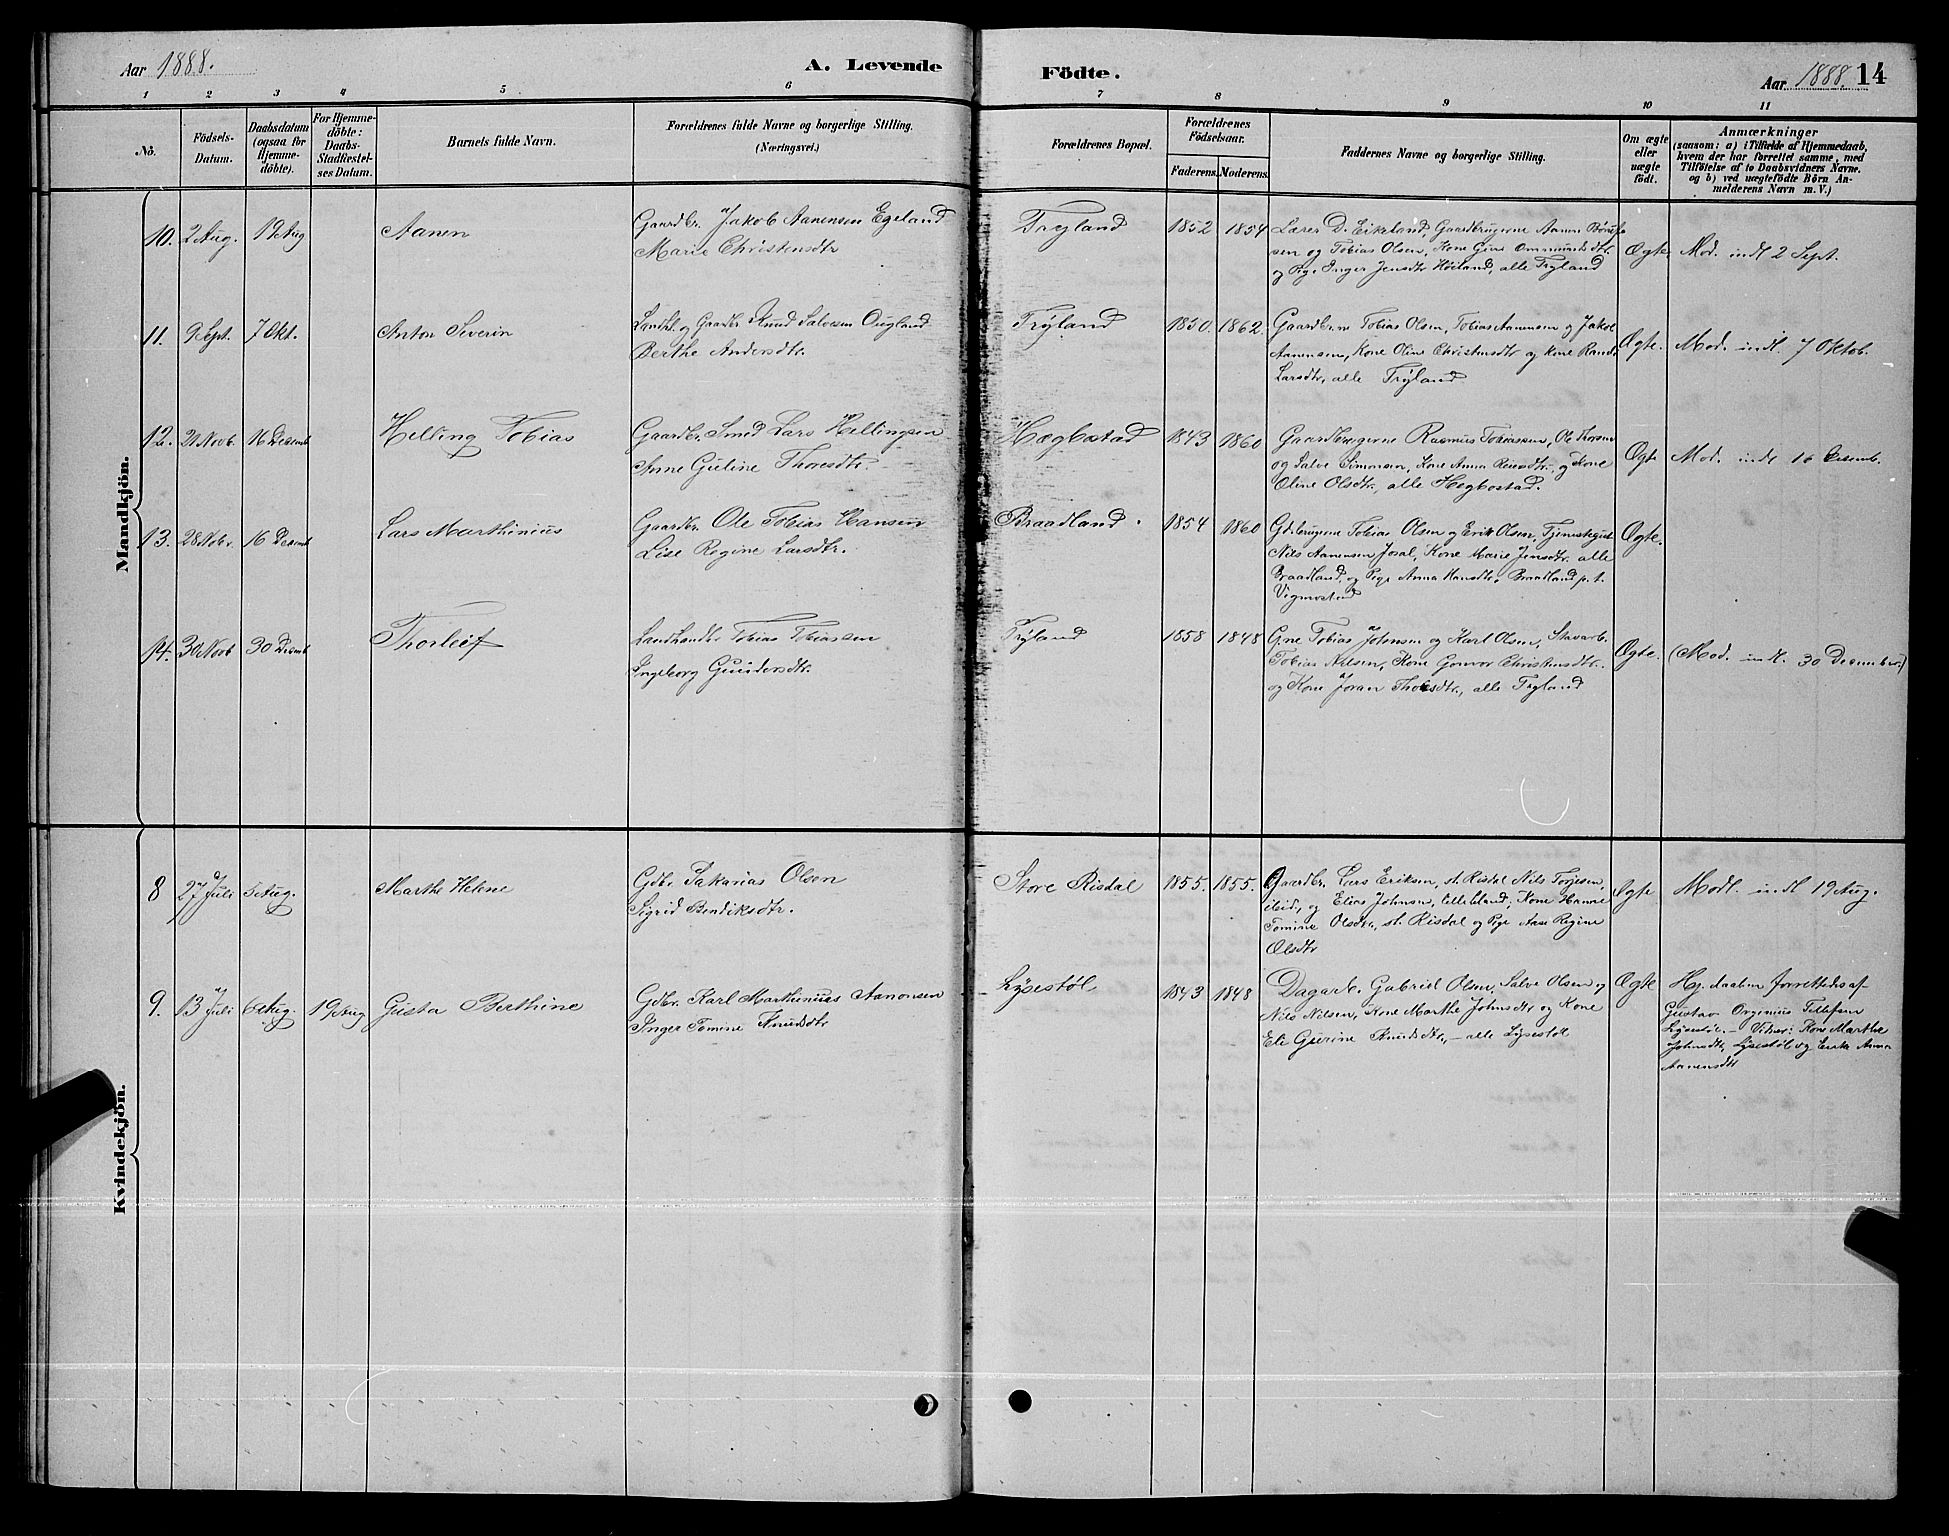 Aar 1888.
A. Levende Födte.
Aar 1888 14
1 2 3 4 5 6 7 8 9 10 11
No.
Födsels-Datum.
Daabsdatum (ogsaa for Hjemme-döbte).
For Hjemme-döbte: Daabs-Stadfæstel-ses Datum.
Barnets fulde Navn.
Forældrenes fulde Navne og borgerlige Stilling.
(Næringsvei.)
Forældrenes Bopæl.
Forældrenes Födselsaar.
Faderens. Moderens.
Faddernes Navne og borgerlige Stilling.
Om ægte eller uægte födt.
Anmærkninger
(saasom: a) i Tilfælde af Hjemmedaab,
hvem der har forrettet samme, med
Tilföielse af to Daabsvidners Navne.
og b) ved uægtefödte Börn An-
melderens Navn m. V.)
Mandkjön.
10. 2 Aug. 19 Aug Aanen
Gaardbr. Jakob Aanensen Egeland
Marie Christensdtr
Tryland 1852 1854
Lærer D. Eikeland, Gaardbrugerne Aanen
sen og Tobias Olsen, Kone Guro Ommundsdtr.
og Pige Inger Jensdtr Höiland, alle Tryland
Ægte. Mod. indl 2 Sept.
11. 9 Sept. 7 Okt. Anton Severin
Landh. og Gaardbr Knud Salvesen Ougland
Berthe Andersdtr.
Trÿland 1850. 1862.
Gaardbrne Tobias Olsen, Tobias Aanensen og Jakob
Aanensen, Kone Oline Christensdtr og Kone Randi
Larsdtr, alle Trÿland
Ægte. Mod. indl. 7 Oktob.
12. 21 Novb. 16 Decemb Helling Tobias
Gaardbr. Smed Lars Hellingsen
Anne Guline Thoresdtr.
Hægbostad 1843 1860
Gaardbrugerne Rasmus Tobiassen, Ole Thorsen
og Salve Simonsen, Kone Anna Reiersdtr. og Kone
Oline Olsdtr., alle Hægbostad.
Ægte Mod. indl 16 Decemb.
13. 28 Nobr. 16 Decemb Lars Marthinius
Gaardbr. Ole Tobias Hansen
Lise Regine Larsdtr.
Braadland. 1854 1860
Gdbrugerne Tobias Olsen og Erik Olsen, Tjenestegut
Nils Aanensen Josal, Kone Marie Jensdtr. alle
Braadland, og Pige Anna Hansdtr, Braadland p.t.
Vigmostad
Ægte.
14. 30 Novb 30 Decemb Thorleif
Landhandler Tobias Tobiassen
Ingeborg Gundersdtr.
Trÿland 1858 1848
Gne Tobias Johnsen og Karl Olsen, Stavarb.
Tobias Nilsen, Kone Gonvor Christensdtr.
og Kone Joran Thorsdtr., alle Tryland
Ægte. (Mod. indl. 30 December.)
Kvindekjön.
8 27 Juli 5 Aug. Marthe Helene
Gdbr. Sakarias Olsen
Sigrid Bendiksdtr.
Store Risdal 1855. 1855.
Gaardbr. Lars Eriksen, st. Risdal Nils Torjesen,
ibid., og Elias Johnsen, Lilleland, Kone Hanne
Tomine Olsdtr., st. Risdal og Pige Anne Regine
Olsdtr
Ægte Modl. indl 19 Aug.
9. 13 Juli 6 Aug. 19 Aug Gusta Berthine
Gdbr. Karl Marthinius Aanonsen
Inger Tomine Knudsdtr
Lÿsestöl 1843 1848
Dagarb. Gabriel Olsen, Salve Olsen og
Nils Nilsen, Kone Marthe Johnsdtr og Kone
Eli Gurine Knudsdtr., — alle Lysestöl
Ægte
Hj. daaben forrettedes af
Gustav Orginius Tellefsen
Lysestöl. — Vidner: Kone Marthe
Johnsdtr, Lysestöl og Enke Anna
Aanensdtr